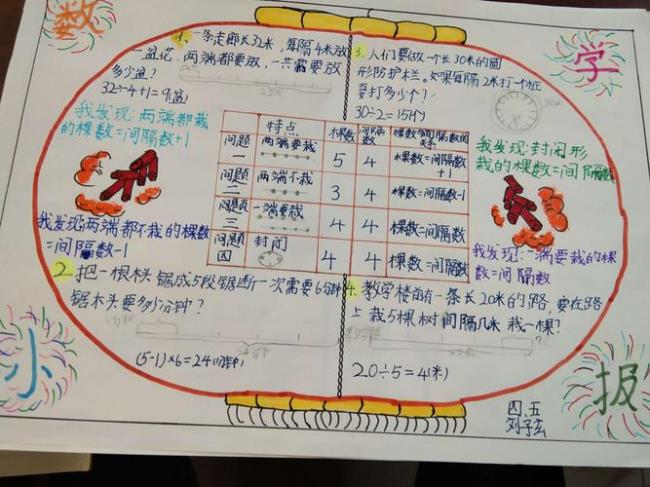 数
学
小
报
1. 一条走廊长32米,每隔4米放
一盆花,两端都要放,一共需要放
多少盆?
32÷4+1=9(盆)
我发现:两端都栽
的棵数=间隔数+1
3. 人们要做一个长30米的圆
形防护栏,如果每隔2米打一个桩
要打多少个?
30÷2=15(个)
我发现:封闭形
栽的棵数=间隔数
特点 棵数 间隔数 棵数与间隔数的关系
问题一 两端要栽 5 4 棵数=间隔数+1
问题二 两端不栽 3 4 棵数=间隔数-1
问题三 一端要栽 4 4 棵数=间隔数
问题四 封闭 4 4 棵数=间隔数
我发现:两端都不栽的棵数
=间隔数-1
我发现:一端要栽的棵
数=间隔数
2. 把一根木头锯成5段锯断一次需要6分钟
锯木头要多少分钟?
(5-1)×6=24(分钟)
4. 教学楼前有一条长20米的路,要在路
上栽5棵树间隔几米栽一棵?
20÷5=4(米)
四、五
刘子玄